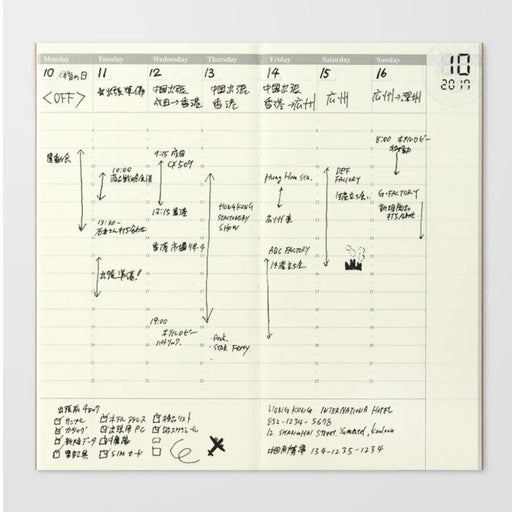 Monday
Tuesday
Wednesday
Thursday
Friday
Saturday
Sunday
10 体育の日
11
12
13
14
15
16
10
2017
<OFF>
☆出張準備
中国出張
成田→香港
中国出張
香港
中国出張
香港→広州
広州
広州→深圳
運動会
10:00
13:30-
出張準備!
9:15 成田
CX509
13:15 香港
香港市場
19:00
ホテルロビー
HONG KONG
STATIONERY
SHOW
Peak.
Star Ferry.
Hung Hom Sta.
広州東
ABC FACTORY
DEF
FACTORY
8:00 ホテルロビー
移動
G.FACTORY
新規商品
打ち合わせ
出張前チェック
☑ サンプル
☑ カタログ
☑ 新規データ
☑ 筆記具
☑ ホテルアドレス
☑ 出張用PC
☑ SIMカード
☑ 検品リスト
HONG KONG INTERNATIONA HOTEL
852-1234-5678
12 SHANGHAI Street, Yaumatei, Kowloon
中国用携帯 134-1235-1234